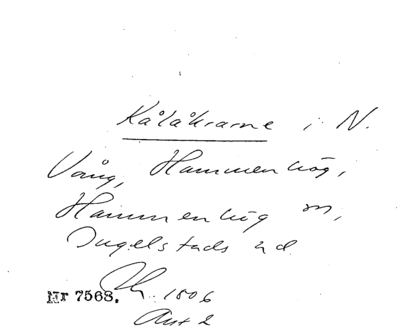 Kålåkrarne i N.
Vång, Hammenhög,
Hammenhög sn,
Ingelstads hd
Nr 7568. 1806
Akt 2